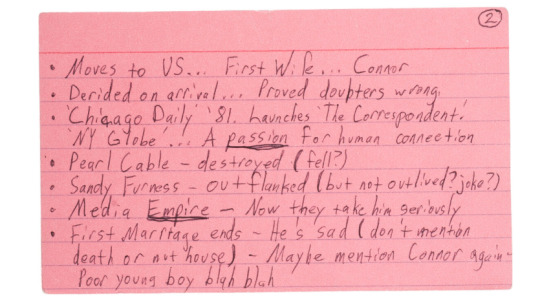 2
• Moves to US... First Wife... Connor
• Derided on arrival... Proved doubters wrong.
• 'Chicago Daily' '81. Launches 'The Correspondent.'
'NY Globe'... A passion for human connection
• Pearl Cable – destroyed (fell?)
• Sandy Furness – outflanked (but not outlived? joke?)
• Media Empire – Now they take him seriously
• First Marriage ends – He's sad (don't mention
death or nut house) – Maybe mention Connor again –
Poor young boy blah blah